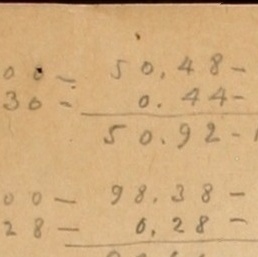 00 — 50.48 —
30 — 0.44 —
50.92 —
00 — 98.38 —
28 — 0.28 —